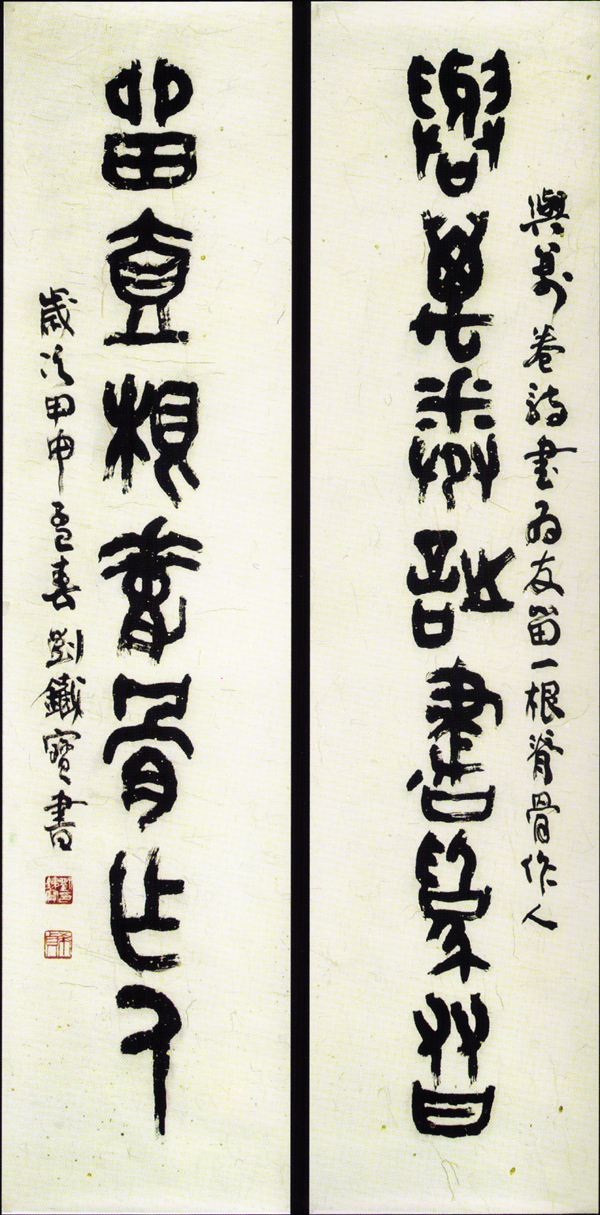 與萬卷詩書為友留一根脊骨作人
與萬卷詩書為友
留壹根脊骨作人
歲次甲申孟春劉鐵寶書